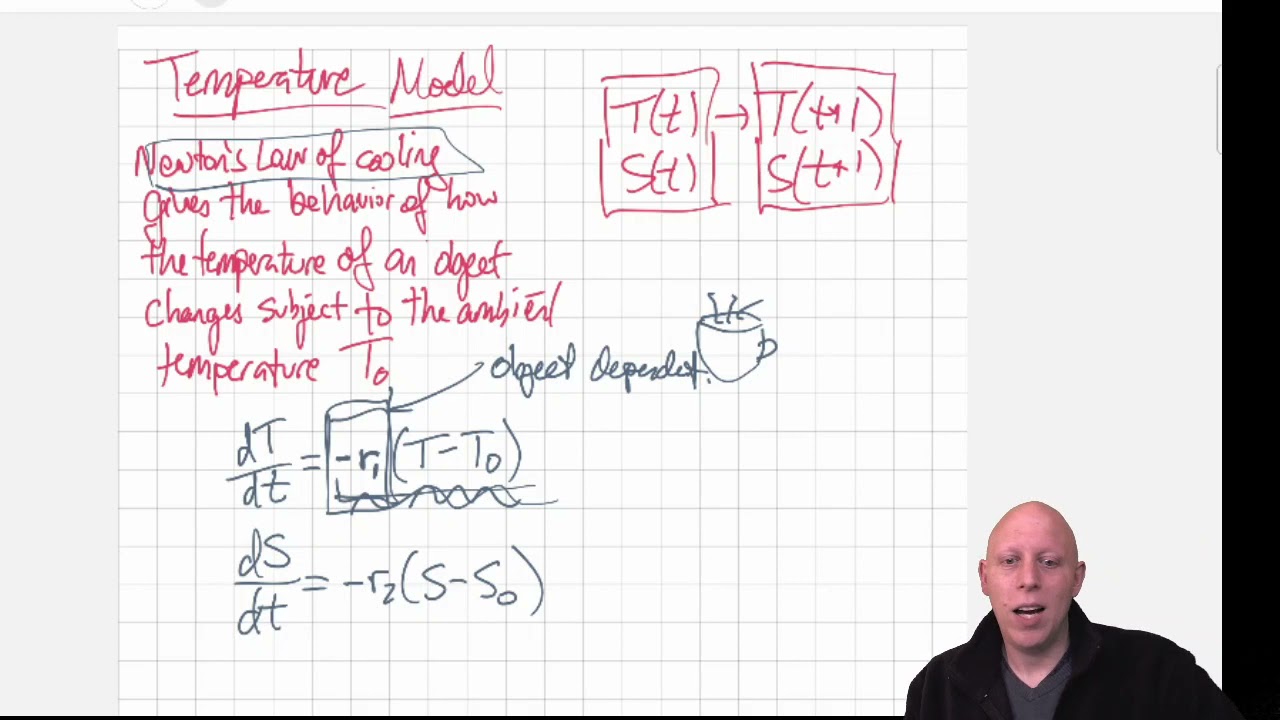 Temperature Model
Newton's Law of cooling
gives the behavior of how
the temperature of an object
changes subject to the ambient
temperature T₀
T(t) → T(t+1)
S(t) S(t+1)
object dependent.
dT/dt = -r₁(T-T₀)
dS/dt = -r₂(S-S₀)